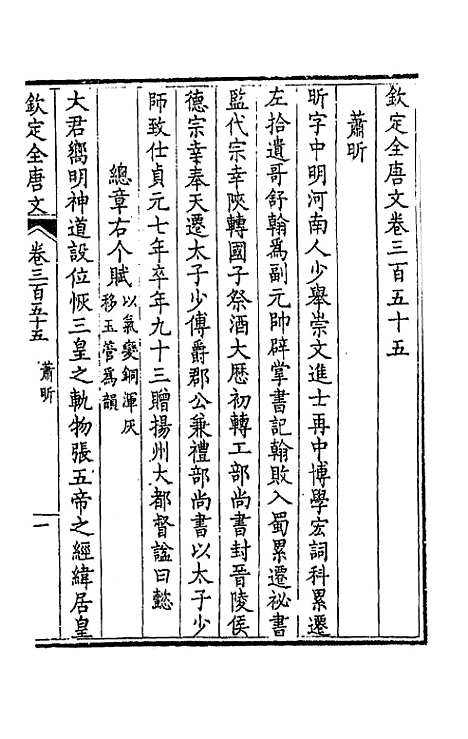 欽定全唐文卷三百五十五
蕭昕
昕字中明河南人少舉崇文進士再中博學宏詞科累遷
左拾遺哥舒翰爲副元帥辟掌書記翰敗入蜀累遷祕書
監代宗幸陜轉國子祭酒大厯初轉工部尚書封晉陵侯
德宗幸奉天遷太子少傅爵郡公兼禮部尚書以太子少
師致仕貞元七年卒年九十三贈揚州大都督諡曰懿
總章右个賦以氣變銅渾灰
移玉管爲韻
大君嚮明神道設位恢三皇之軌物張五帝之經緯居皇
欽定全唐文 卷三百五十五 蕭昕 一